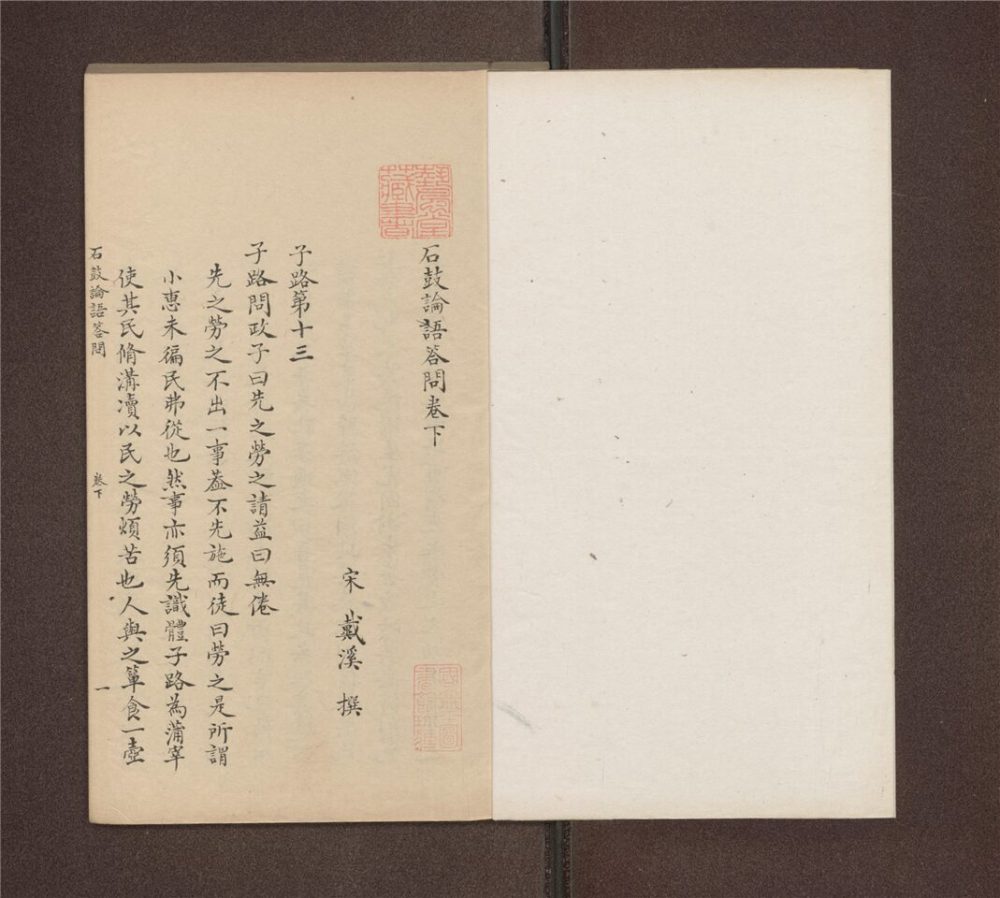 石鼓論語答問卷下
宋 戴溪 撰
子路第十三
子路問政子曰先之勞之請益曰無倦
先之勞之不出一事葢不先施而徒曰勞之是所謂
小惠未徧民弗從也然事亦須先識體子路為蒲宰
使其民脩溝瀆以民之勞煩苦也人與之簞食一壺
石鼓論語答問
卷下
一